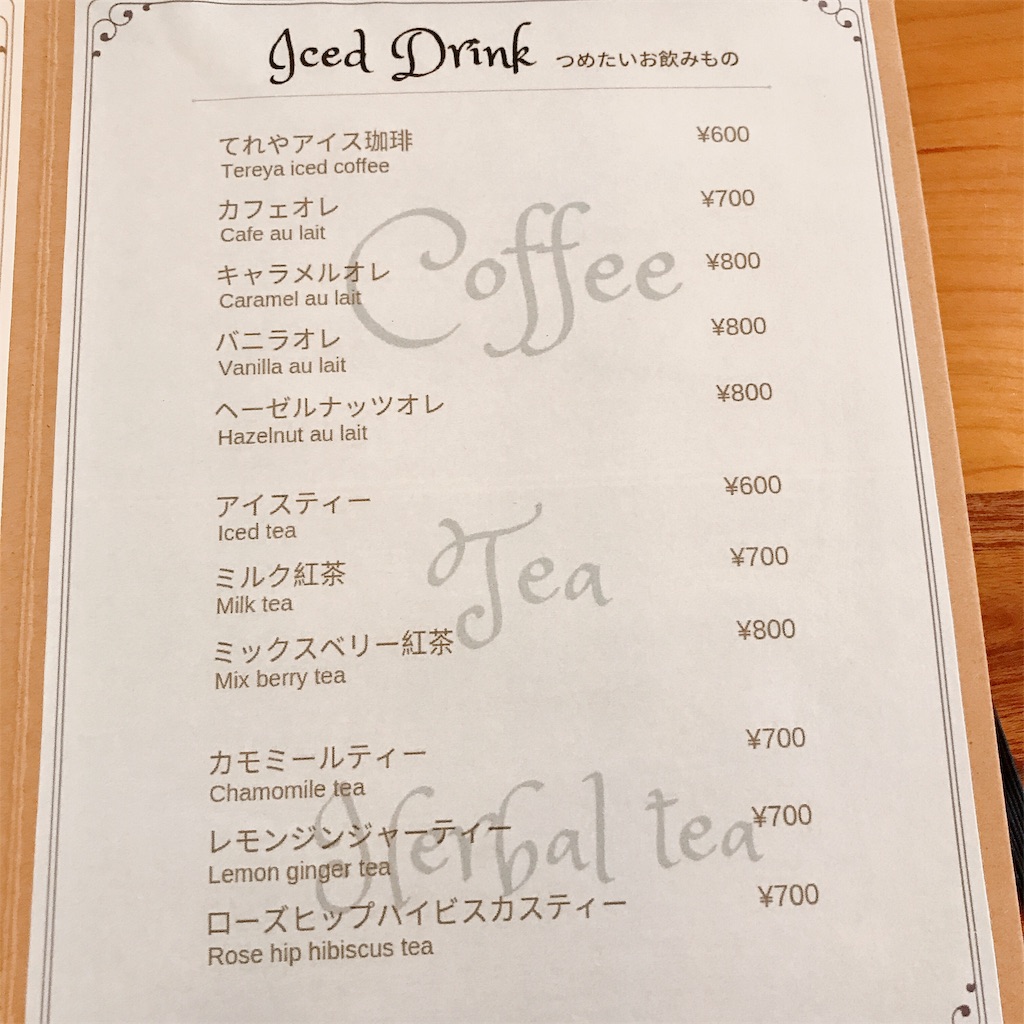 Iced Drink つめたいお飲みもの
てれやアイス珈琲 ¥600
Tereya iced coffee
カフェオレ ¥700
Cafe au lait
キャラメルオレ ¥800
Caramel au lait
Coffee
バニラオレ ¥800
Vanilla au lait
ヘーゼルナッツオレ ¥800
Hazelnut au lait
アイスティー ¥600
Iced tea
Tea
ミルク紅茶 ¥700
Milk tea
ミックスベリー紅茶 ¥800
Mix berry tea
カモミールティー ¥700
Chamomile tea
Herbal tea
レモンジンジャーティー ¥700
Lemon ginger tea
ローズヒップハイビスカスティー ¥700
Rose hip hibiscus tea